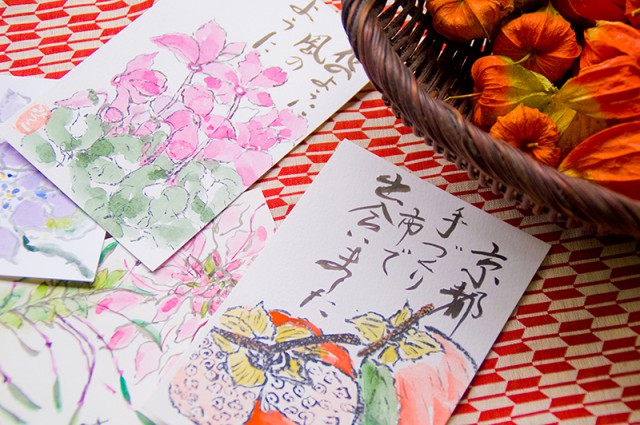 風の
ように
京都
手づくり
市で
出会いました